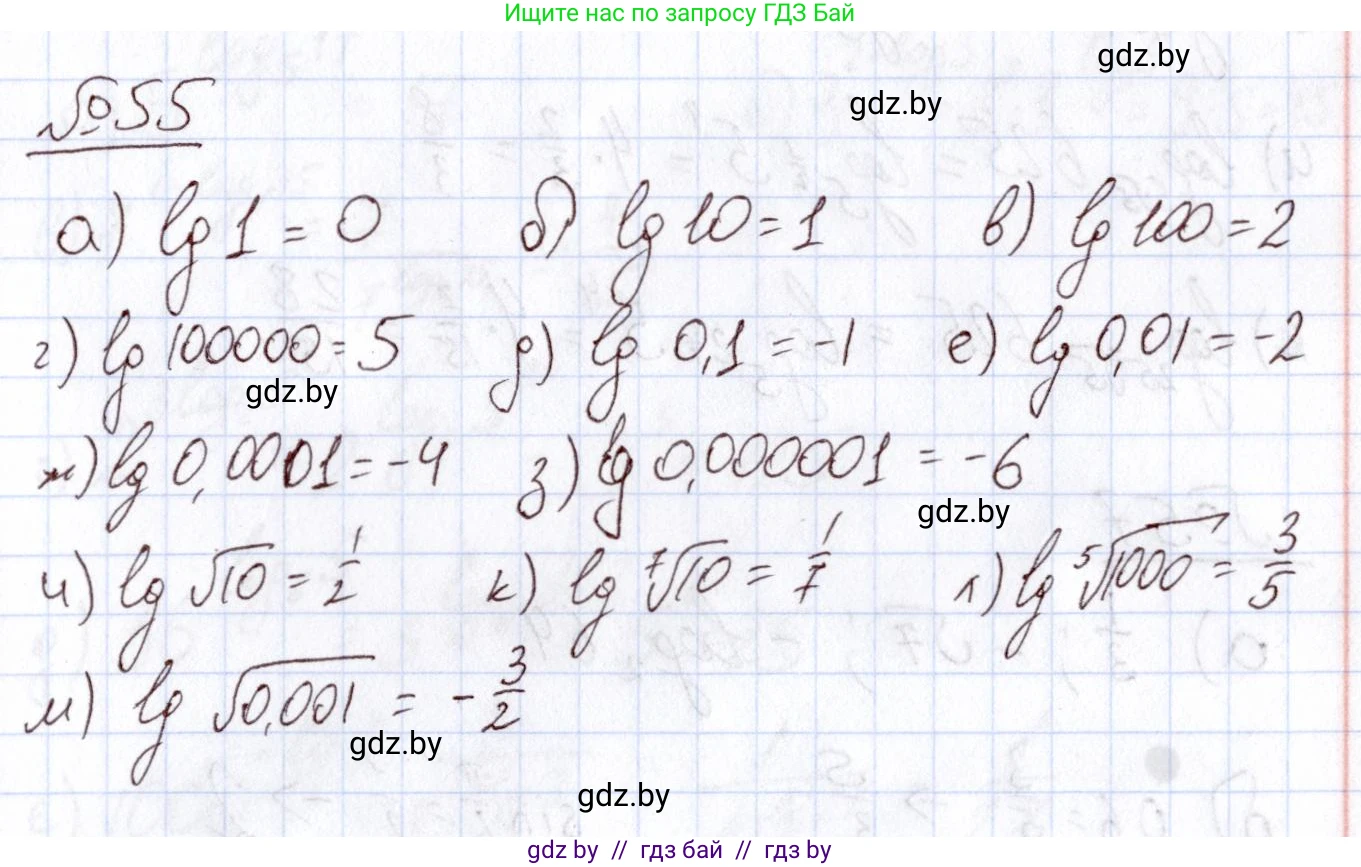 Ищите нас по запросу ГДЗ Бай
gdz.by
gdz.by
№55
а) lg 1 = 0 б) lg 10 = 1 в) lg 100 = 2
г) lg 100000 = 5 д) lg 0,1 = -1 е) lg 0,01 = -2
gdz.by
ж) lg 0,0001 = -4 з) lg 0,000001 = -6
gdz.by
и) lg √10 = 1/2 к) lg ⁷√10 = 1/7 л) lg ⁵√1000 = 3/5
м) lg √0,001 = - 3/2
gdz.by
gdz.by
gdz by // гдз бай // гдз by